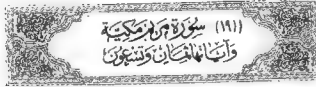 (١٩) سُورَة مَريَم مَكيَّة
وَآيَاتهَا ثمَانٌ وَتِسْعُونَ